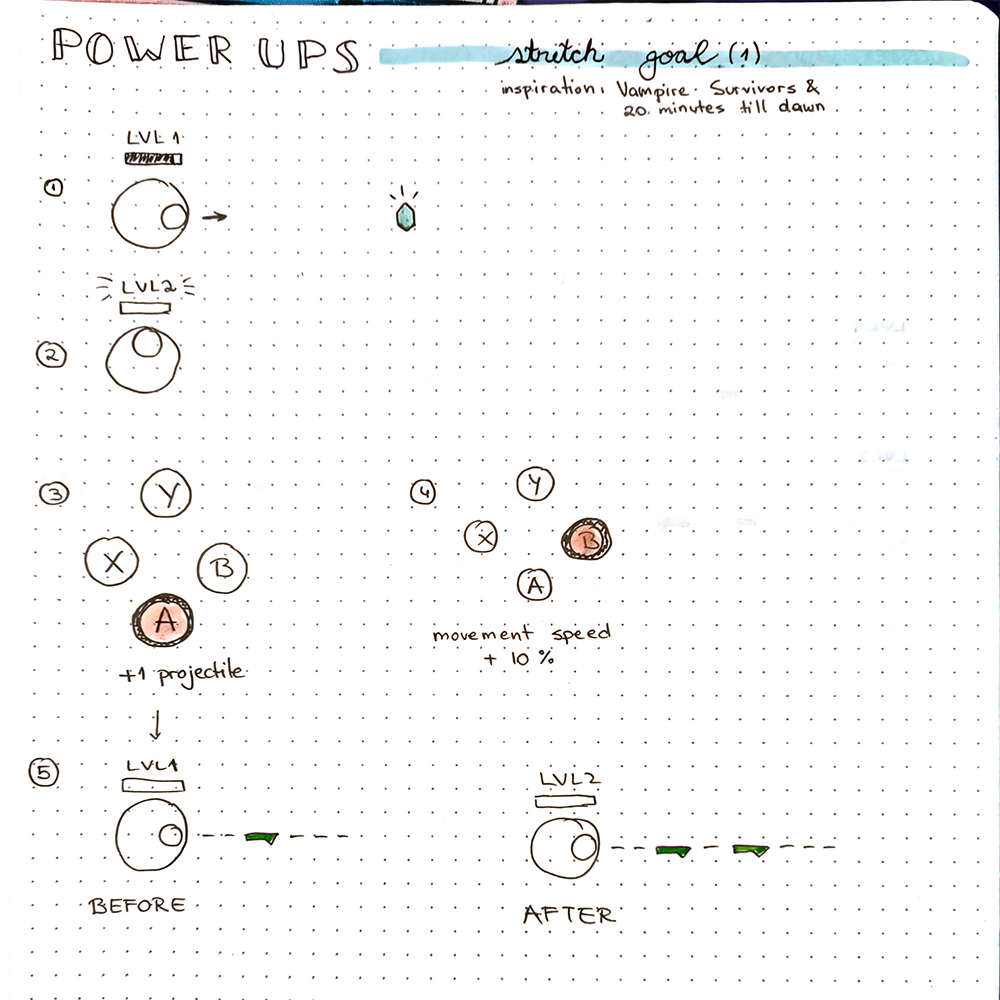 POWER UPS
stretch goal (1)
inspiration: Vampire Survivors &
20 minutes till dawn
LVL 1
1
LVL2
2
3
Y
X
B
A
+1 projectile
4
Y
X
B
A
movement speed
+ 10 %
5
LVL1
BEFORE
LVL2
AFTER